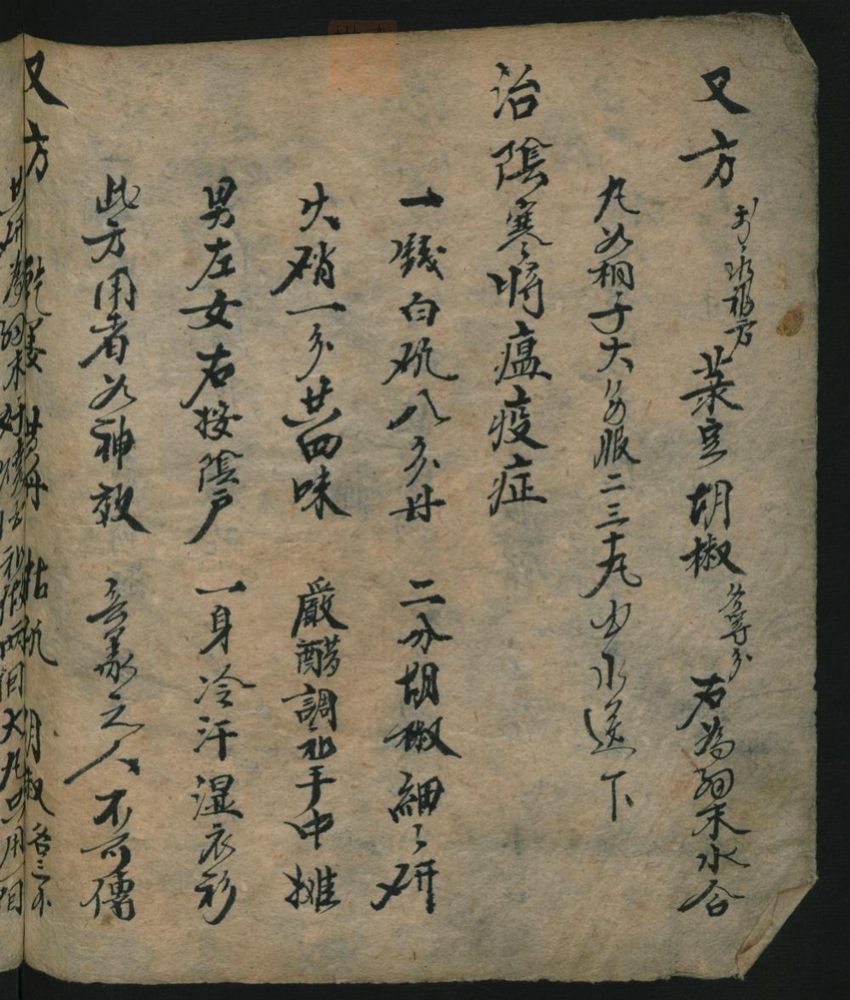 又方 菉豆 胡椒 各等分 右為細末水合
丸如桐子大每服二三十丸 水送下
治陰寒時瘟疫症
一錢白矾八分丹 二分胡椒細々研
火硝一分共四味 嚴醋調和手中摊
男左女右按陰戶 一身冷汗湿衣衫
此方用者如神效 之人不可傳
又方 乾姜 黄丹 枯矾 胡椒 各三